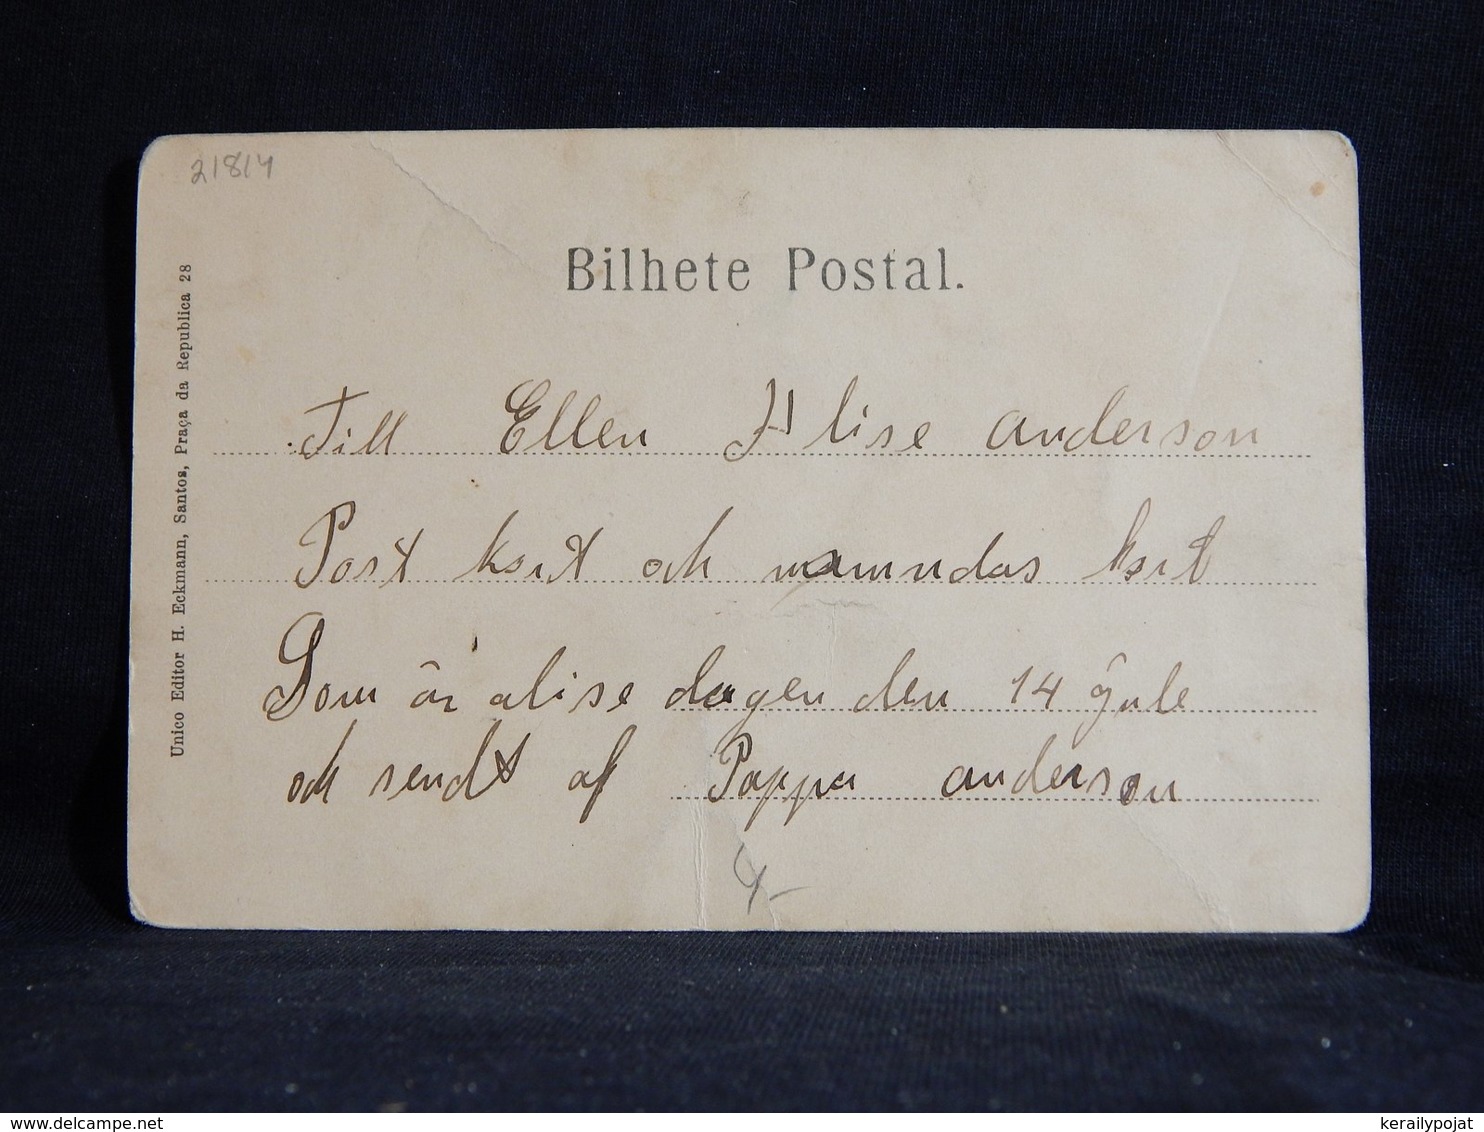 21814
Bilhete Postal.
Unico Editor H. Eckmann, Santos, Praça da Republica 28
Till Ellen Alise anderson
Post kort och namndas kort
Som är alise dagen den 14 Jule
och sendt af Pappa anderson
kerailypojat